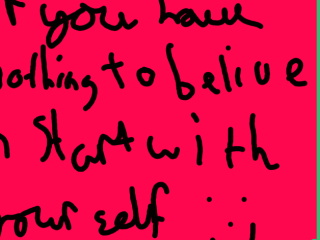 f you have
nothing to belive
n start with
your self :